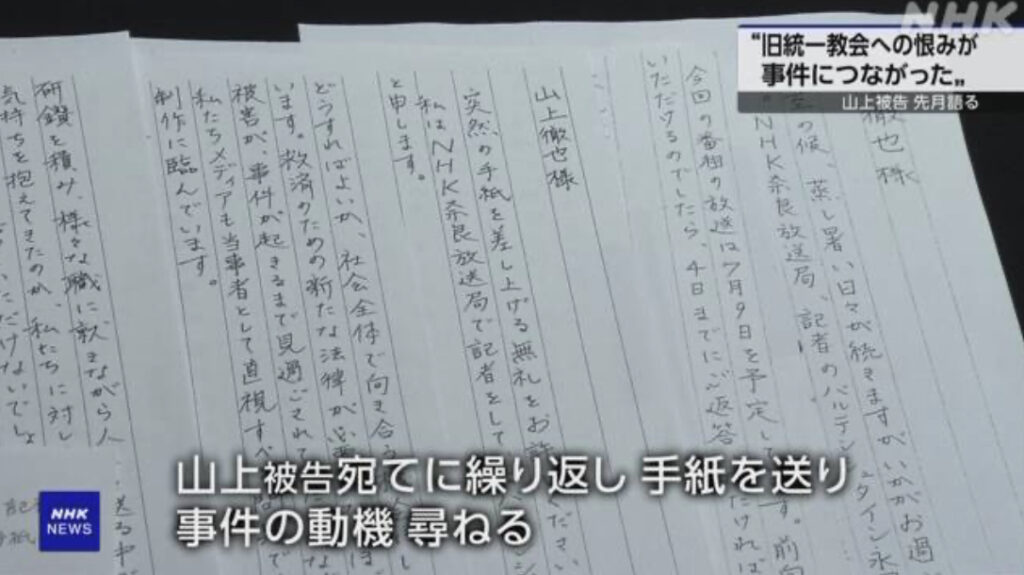 NHK
“旧統一教会への恨みが
事件につながった„
山上被告 先月語る
徹也様
の候、蒸し暑い日々が続きますがいかがお過
NHK奈良放送局、記者のバルテン タイン永
今回の番組の放送は7月9日を予定して す。前向
いただけるのでしたら、4日までにご返答 だければ
山上徹也様
突然の手紙を差し上げる無礼をお許 ください
私はNHK奈良放送局で記者をして
と申します。
どうすればよいか、社会全体で向き合う
います。救済のための新たな法律が必要
被害が、事件が起きるまで見過ごされて
私たちメディアも当事者として直視すべ で
制作に臨んでいます。
研鑽を積み、様々な職に就きながら人
気持ちを抱えてきたのか、私たちに対し
ただけないでしょ
送る中
山上被告宛てに繰り返し 手紙を送り
事件の動機 尋ねる
NHK
NEWS